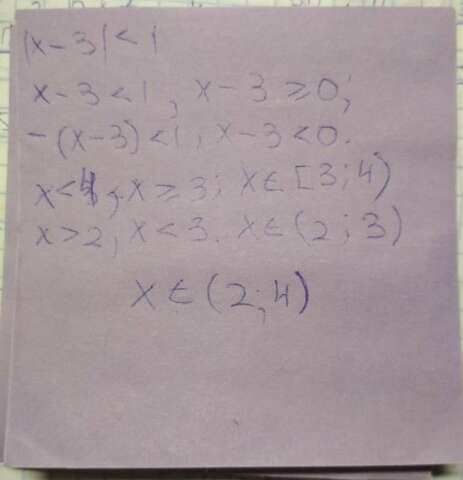 |x-3|<1
x-3<1, x-3≥0;
-(x-3)<1, x-3<0.
x<4, x≥3; x∈[3;4)
x>2, x<3. x∈(2;3)
x∈(2;4)